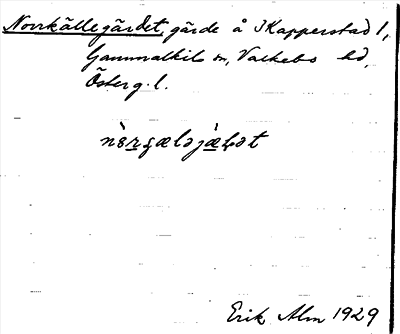 Norrkällegärdet, gärde å Skapperstad 1,
Gammalkils sn, Valkebo hd,
Österg. l.
Erik Alm 1929